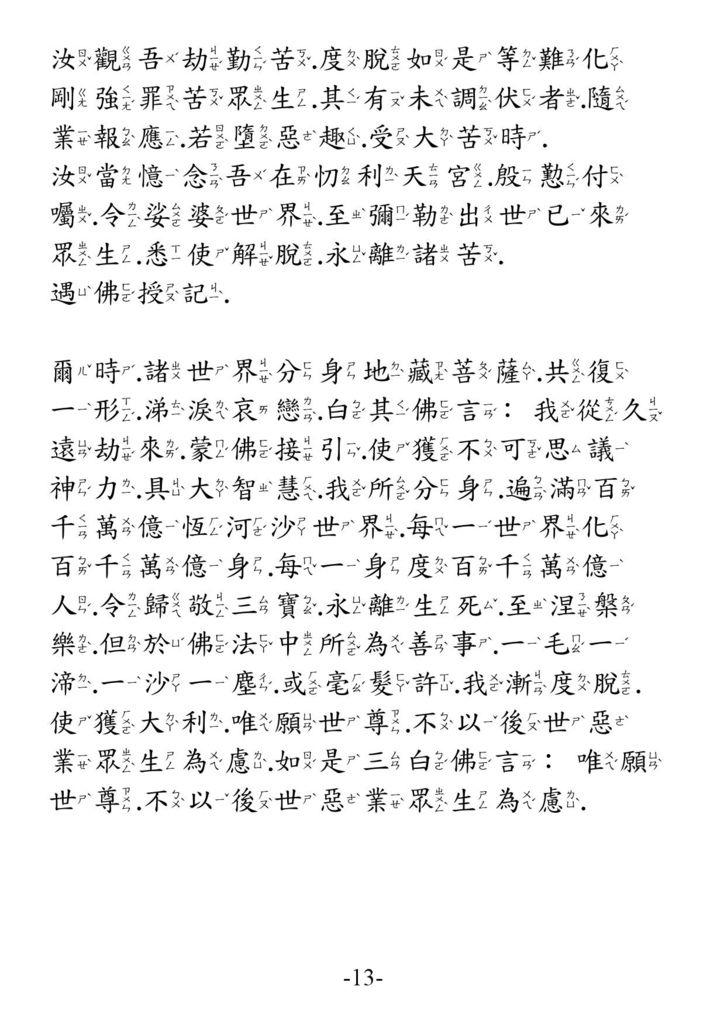 汝觀吾劫勤苦.度脫如是等難化
剛強罪苦眾生.其有未調伏者.隨
業報應.若墮惡趣.受大苦時.
汝當憶念吾在忉利天宮.殷懃付
囑.令娑婆世界.至彌勒出世已來
眾生.悉使解脫.永離諸苦.
遇佛授記.
爾時.諸世界分身地藏菩薩.共復
一形.涕淚哀戀.白其佛言：我從久
遠劫來.蒙佛接引.使獲不可思議
神力.具大智慧.我所分身.遍滿百
千萬億恆河沙世界.每一世界化
百千萬億身.每一身度百千萬億
人.令歸敬三寶.永離生死.至涅槃
樂.但於佛法中所為善事.一毛一
渧.一沙一塵.或毫髮許.我漸度脫.
使獲大利.唯願世尊.不以後世惡
業眾生為慮.如是三白佛言：唯願
世尊.不以後世惡業眾生為慮.
-13-